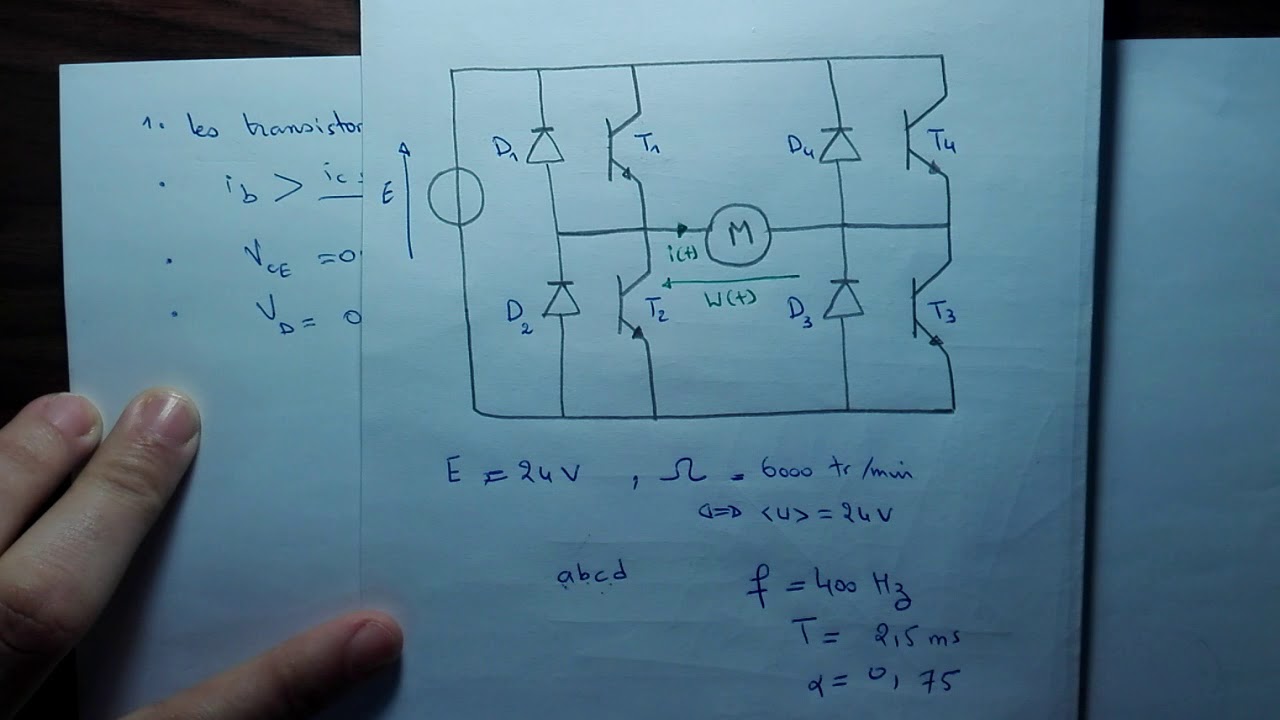 1. les transistor
• ib > ic
• VCE = 0
• VD = 0
E
D1
T1
D4
T4
M
i(t)
U(t)
D2
T2
D3
T3
E = 24V , Ω = 6000 tr/min
<=> <U> = 24V
abcd
f = 400 Hz
T = 2,5 ms
α = 0,75